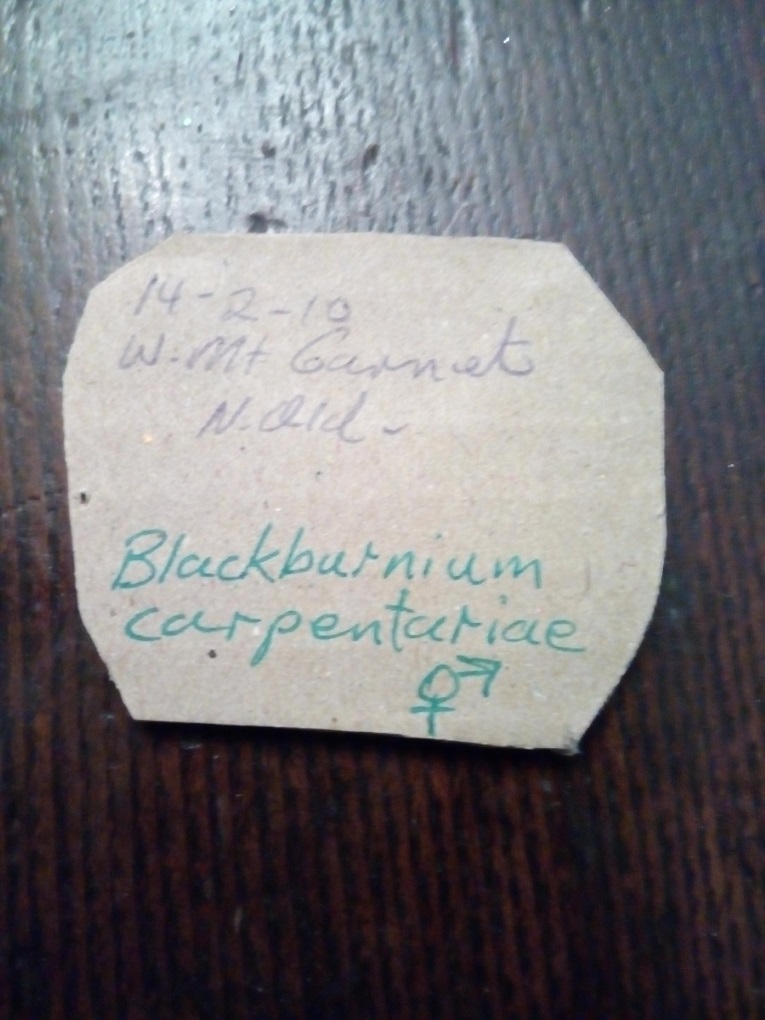 14-2-10
W. Mt Garnet
N. Qld -
Blackburnium
carpentariae
⚥